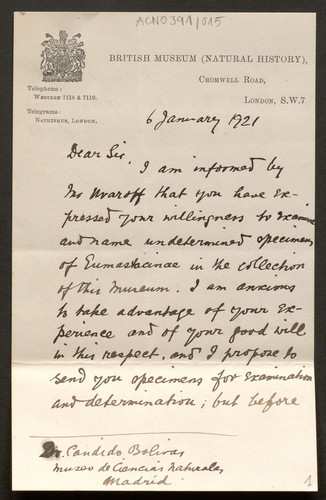 ACN0391/015
BRITISH MUSEUM (NATURAL HISTORY),
CROMWELL ROAD,
LONDON, S.W.7
Telephone:
WESTERN 7118 & 7119.
Telegrams:
NATHISMUS, LONDON.
6 January 1921
Dear Sir,
I am informed by
Mr Uvaroff that you have ex-
pressed your willingness to examine
and name undetermined specimens
of Eumastacinae in the collection
of this Museum. I am anxious
to take advantage of your ex-
perience and of your good will
in this respect, and I propose to
send you specimens for examination
and determination; but before
Dr. Candido Bolivar
Museo de Ciencias Naturales
Madrid
1